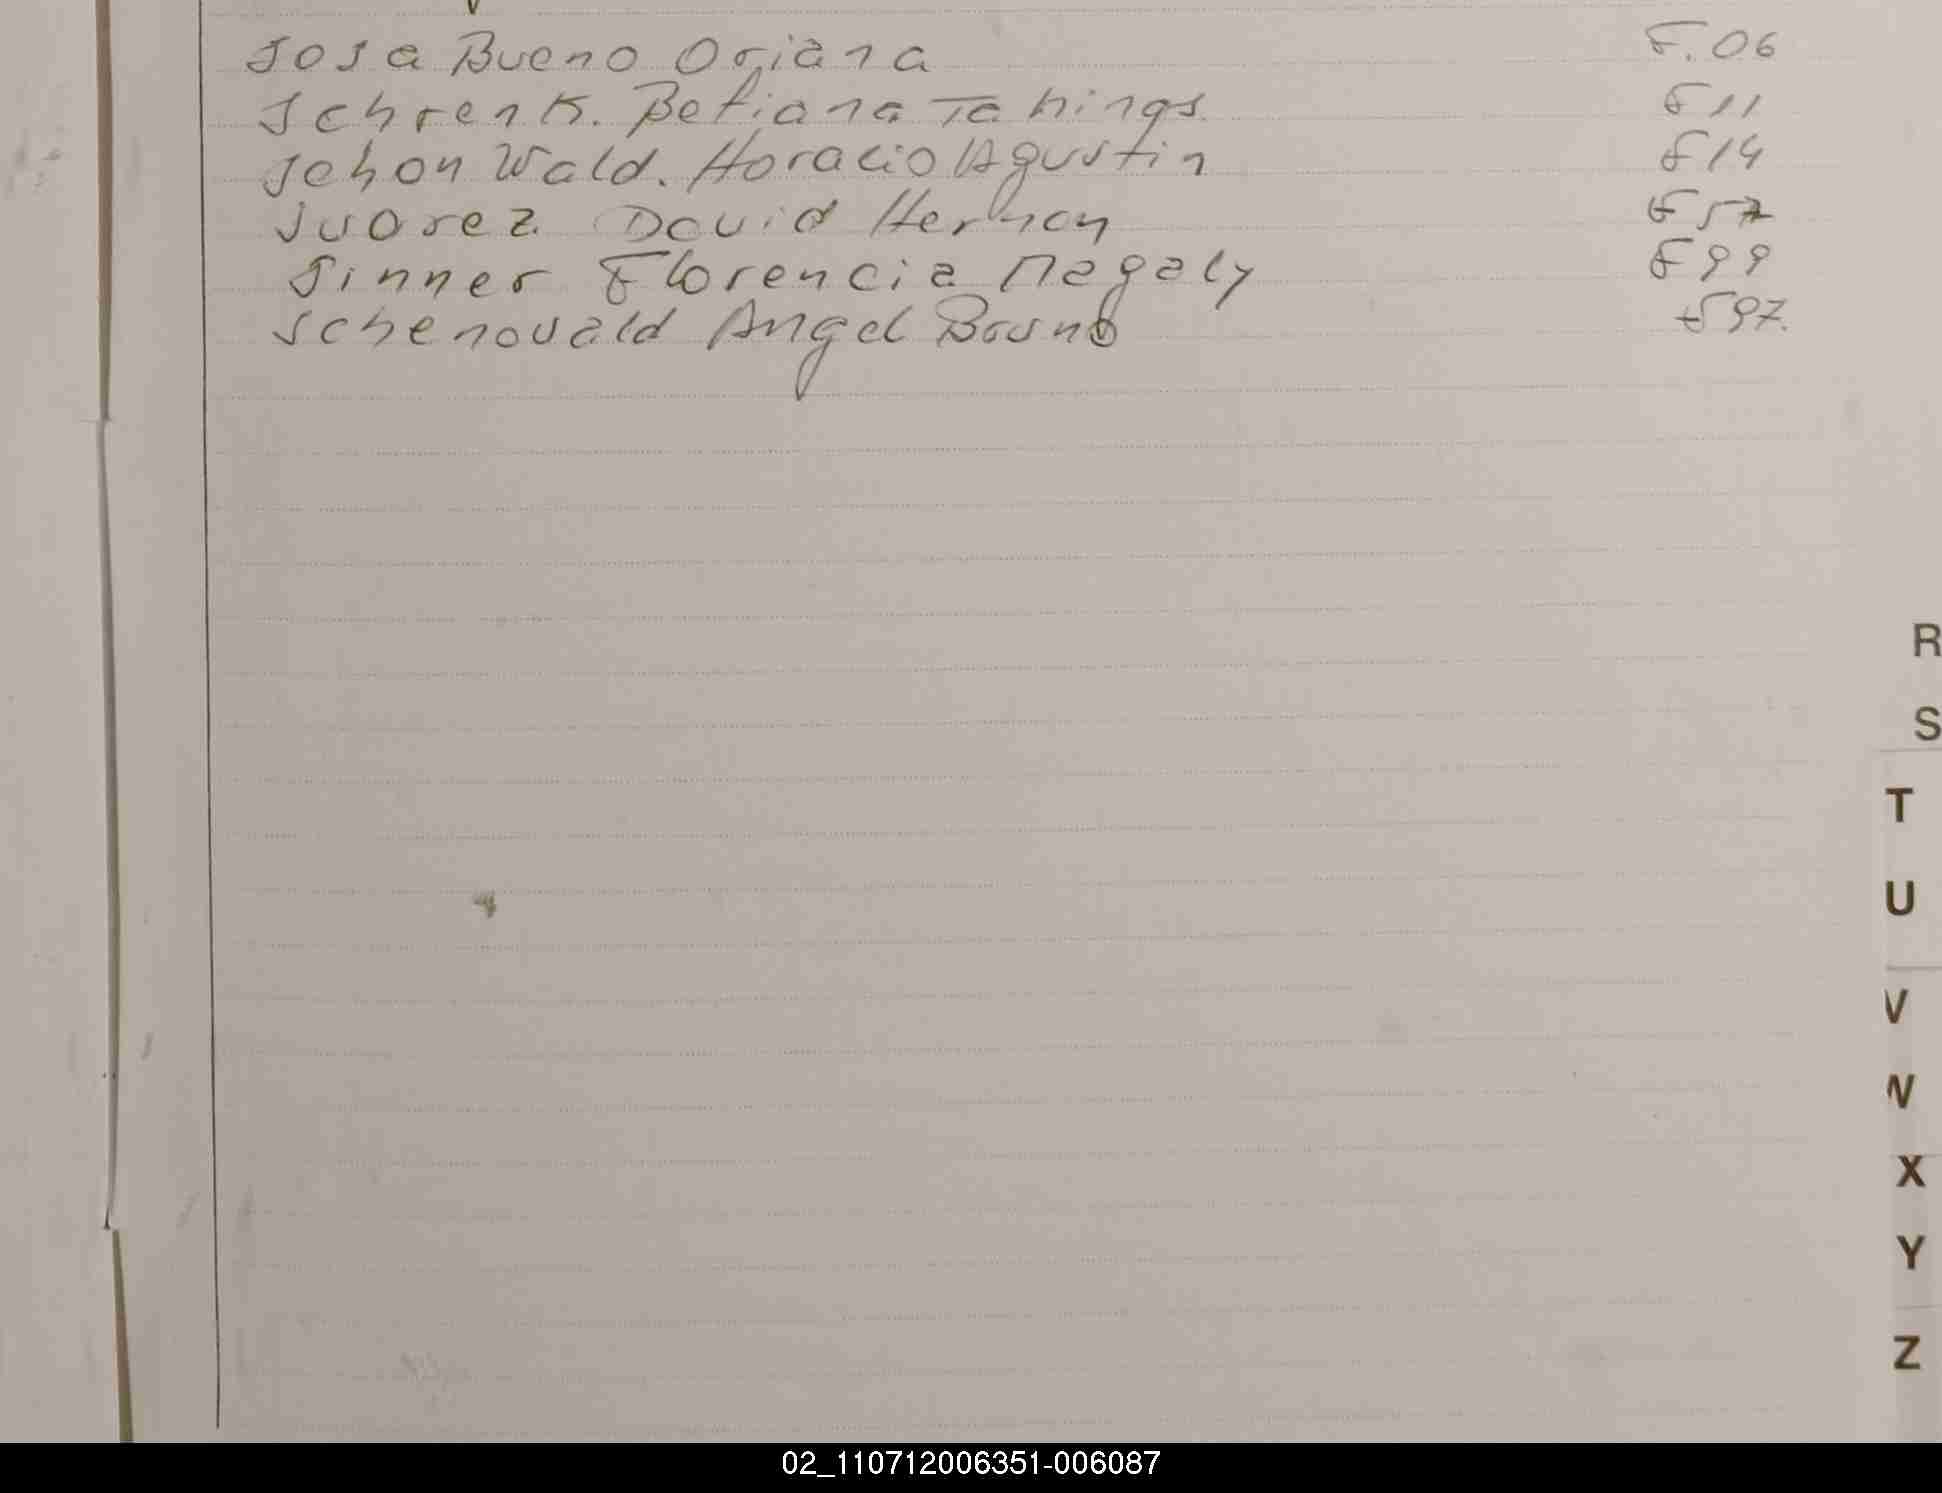 Sosa Bueno Oriana F.06
Schrenk. Betiana Tahings. F 11
Schonwald. Horacio Agustin F 14
Suarez David Hernan F 57
Sinner Florencia Magaly F 99
Schenovald Angel Bruno F 97.
R
S
T
U
V
W
X
Y
Z
02_110712006351-006087